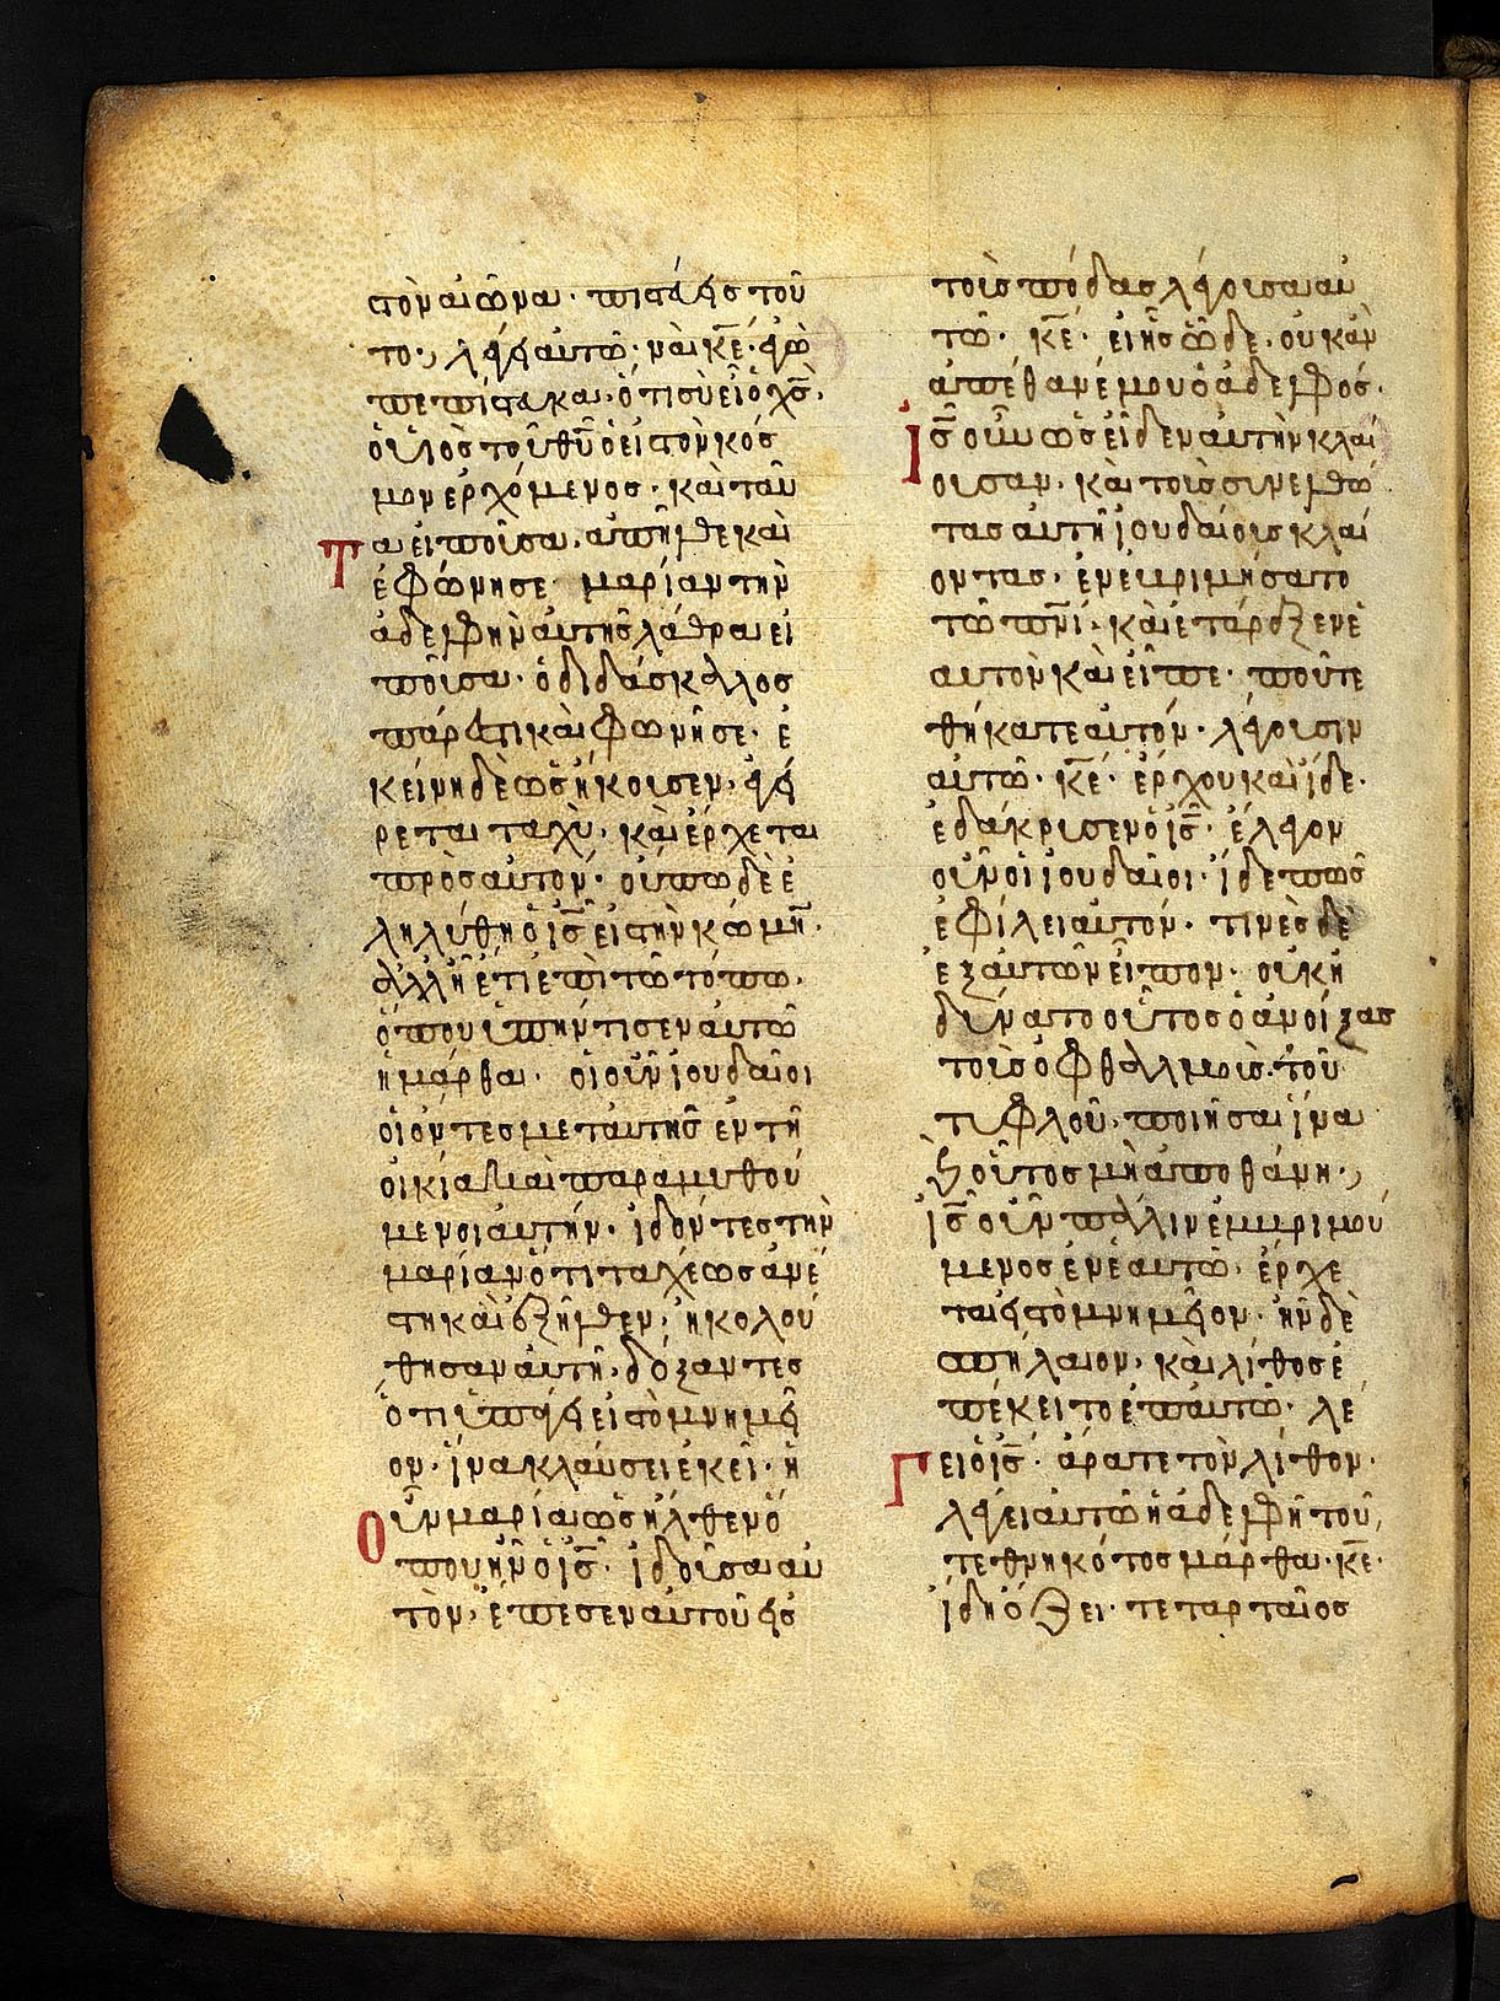 στὸν αἰῶνα· πιστεύεις τοῦ
το· λέγει αὐτῶ· ναὶ κ̅ε̅· ἐγὼ
πεπίστευκα· ὅτι σὺ εἶ ὁ χ̅ς̅·
ὁ υἱὸς τοῦ θ̅υ̅ ὁ εἰς τὸν κόσ
μον ἐρχόμενος· καὶ ταῦ
Τα εἰποῦσα· ἀπῆλθε καὶ
ἐφώνησε μαρίαν τὴν
ἀδελφὴν αὐτῆς λάθρα εἰ
ποῦσα· ὁ διδάσκαλος
πάρεστι καὶ φωνῆ σε· ἐ
κείνη δὲ ὡς ἤκουσεν· ἐγεί
ρεται ταχὺ· καὶ ἔρχεται
πρὸς αὐτόν· οὔπω δὲ ἐ
ληλύθη ὁ ι̅ς̅ εἰς τὴν κώμη̅·
ἀλλ ἦ ἔτι ἐπὶ τῶ τόπω·
ὅπου ὑπήντισεν αὐτῶ
ἡ μάρθα· οἱ οὖν ἰουδαῖοι
οἱ ὄντες μετ αὐτῆς ἐν τῆ
οἰκία καὶ παραμυθού
μενοι αὐτήν· ἰδόντες τὴν
μαρίαν ὅτι ταχέως ἀνέ
στη καὶ ἐξῆλθεν· ἠκολού
θησαν αὐτῆ· δόξαντες
ὅτι ὑπάγει εἰς τὸ μνημεῖ
ον· ἵνα κλαύσει ἐκεῖ· ἡ
Οὖν μαρία ὡς ἦλθεν ὅ
που ἦν ὁ ι̅ς̅· ἰδοῦσα αὐ
τὸν· ἔπεσεν αὐτοῦ εἰς
τοὺς πόδας λέγουσα αὐ
τῶ· κ̅ε̅· εἰ ἦς ὧδε· οὐκ ἂν
ἀπέθανέ μου ὁ ἀδελφός·
Ι̅ς̅ οὖν ὡς εἶδεν αὐτὴν κλαί
ουσαν· καὶ τοὺς συνελθό
τας αὐτῆ ἰουδαίους κλαί
οντας· ἐνεβριμήσατο
τῶ π̅ν̅ι̅· καὶ ἐτάραξεν ἑ
αυτὸν καὶ εἶπε· ποῦ τε
θήκατε αὐτόν· λέγουσιν
αὐτῶ· κ̅ε̅· ἔρχου καὶ ἴδε·
ἐδάκρισεν ὁ ι̅ς̅· ἔλεγον
οὖν οἱ ἰουδαῖοι· ἴδε πῶς
ἐφίλει αὐτόν· τινὲς δὲ
ἐξ αὐτῶν εἶπον· οὐκ ἠ
δύνατο οὗτος ὁ ἀνοίξας
τοὺς ὀφθαλμοὺς τοῦ
τυφλοῦ· ποιῆσαι ἵνα
καὶ οὗτος μὴ ἀποθάνη·
ι̅ς̅ οὖν πάλιν ἐμβριμού
μενος ἐν ἑαυτῶ· ἔρχε
ται εἰς τὸ μνημεῖον· ἦν δὲ
σπήλαιον· καὶ λίθος ἐ
πέκειτο ἐπ αὐτῶ· λέ
Γει ὁ ι̅ς̅· ἄρατε τὸν λίθον·
λέγει αὐτῶ ἡ ἀδελφὴ τοῦ
τεθνηκότος μάρθα· κ̅ε̅·
ἴδη ὄζει· τεταρταῖος